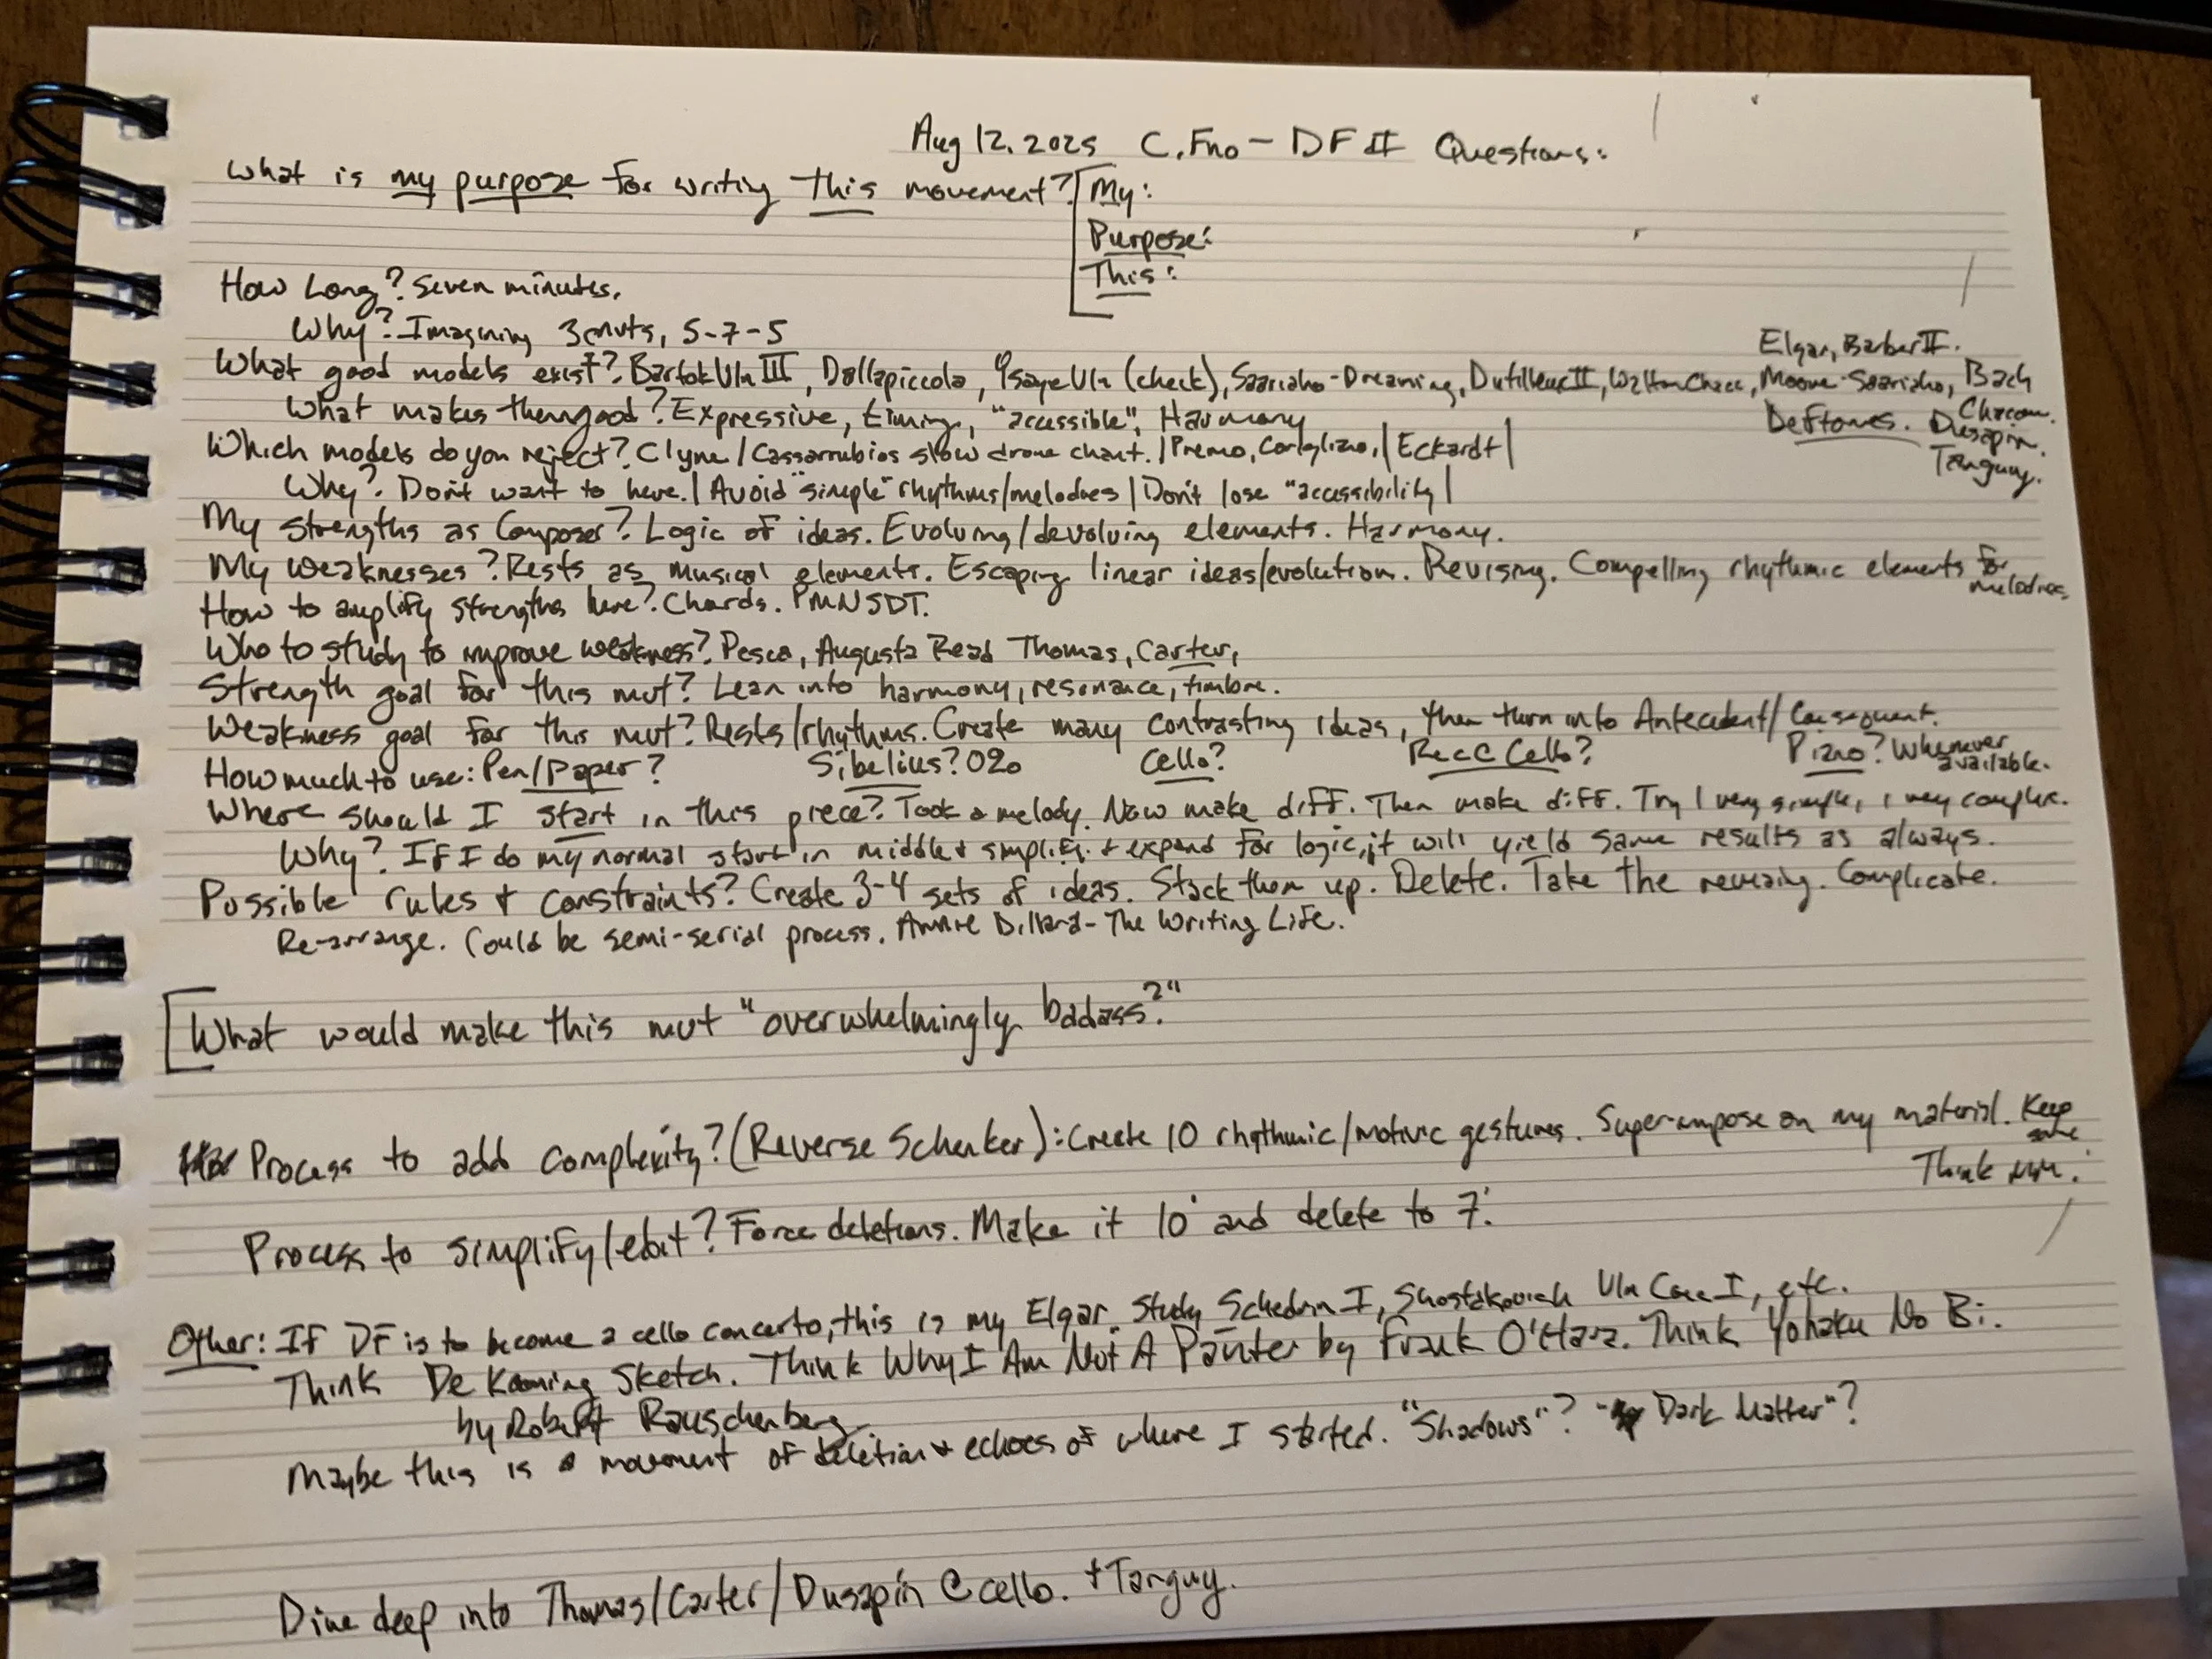 Aug 12, 2025 C. Fno - DF II Questions:
What is my purpose for writing this movement? [My:
Purpose:
This:
How Long? Seven minutes.
Why? Imagining 3 mvts, 5-7-5
Elgar, Barber II.
What good models exist? Bartok Vln III, Dallapiccola, Ysaye Vln (check), Saariaho-Dreaming, Dutilleux II, Walton Chacc, Moore-Saariaho, Bach Chacon.
What makes them good? Expressive, timing, "accessible", Harmony
Deftones. Dusapin. Tanguy.
Which models do you reject? Clyne/Cassarrubios slow drone chant. | Premo, Corigliano, | Eckardt |
Why? Don't want to here. | Avoid "simple" rhythms/melodies | Don't lose "accessibility |
My strengths as Composer? Logic of ideas. Evolving/devolving elements. Harmony.
My weaknesses? Rests as musical elements. Escaping linear ideas/evolution. Revising. Compelling rhythmic elements for melodies.
How to amplify strengths here? Chords. PMNSDT.
Who to study to improve weakness? Pesca, Augusta Read Thomas, Carter,
Strength goal for this mvt? Lean into harmony, resonance, timbre.
Weakness goal for this mvt? Rests/rhythms. Create many contrasting ideas, then turn into Antecedent/Consequent.
How much to use: Pen/Paper? Sibelius? 0% Cello? Rec C Cello? Piano? Whenever available.
Where should I start in this piece? Took a melody. Now make diff. Then make diff. Try 1 very simple, 1 very complex.
Why? If I do my normal start in middle + simplify + expand for logic, it will yield same results as always.
Possible rules + constraints? Create 3-4 sets of ideas. Stack them up. Delete. Take the remaing. Complicate.
Re-arrange. Could be semi-serial process. Annie Dillard - The Writing Life.
[What would make this mvt "overwhelmingly badass?"
Process to add complexity? (Reverse Schenker): Create 10 rhythmic/motivic gestures. Super-impose on my material. Keep some
Think
Process to simplify/edit? Force deletions. Make it 10' and delete to 7.'
Other: If DF is to become a cello concerto, this is my Elgar. Study Schedrin I, Shostakovich Vln Conc I, etc.
Think De Kooning Sketch. Think Why I Am Not A Painter by Frank O'Hara. Think Yohaku No Bi.
by Robert Rauschenberg
Maybe this is a movement of deletion + echoes of where I started. "Shadows"? "Dark Matter"?
Dive deep into Thomas/Carter/Dusapin C cello. + Tanguy.